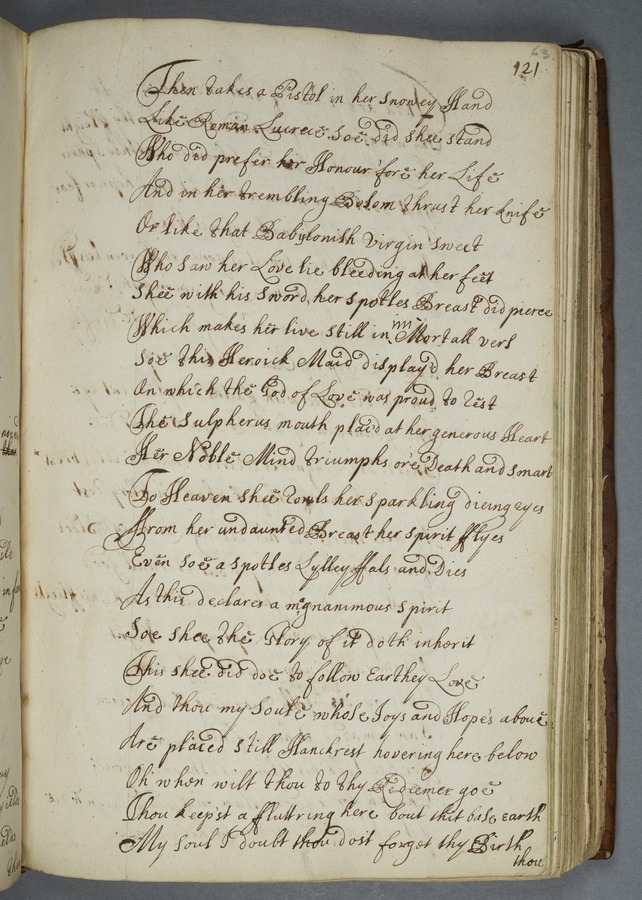 63
121
Then takes a Pistol in her snowey Hand
Like Roman Lucrece soe did shee stand
Who did prefer her Honour 'fore her Life
And in her trembling Bosom thrust her knife
Or like that Babylonish Virgin sweet
Who saw her Love lie bleeding at her feet
Shee with his sword her spotles Breast did pierce
Which makes her live still in im Mortall vers
Soe this Heroick Maid display'd her Breast
On which the God of Love was proud to rest
The Sulpherus mouth placd at her generous Heart
Her Noble Mind triumphs o're Death and smart
To Heaven shee rowls her sparkling dieing eyes
ffrom her undaunted Breast her spirit fflyes
Even soe a spotles Lylley ffals and Dies
As this declares a magnanimous spirit
Soe shee the Glory of it doth inherit
This shee did doe to follow Earthey Love
And thou my Soule whose Joys and Hopes above
Are placed still Hanckrest hovering here below
Oh when wilt thou to thy Redeemer goe
Thou keep'st a ffluttring here bout this base earth
My soul I doubt thou dost forget thy Birth
thou